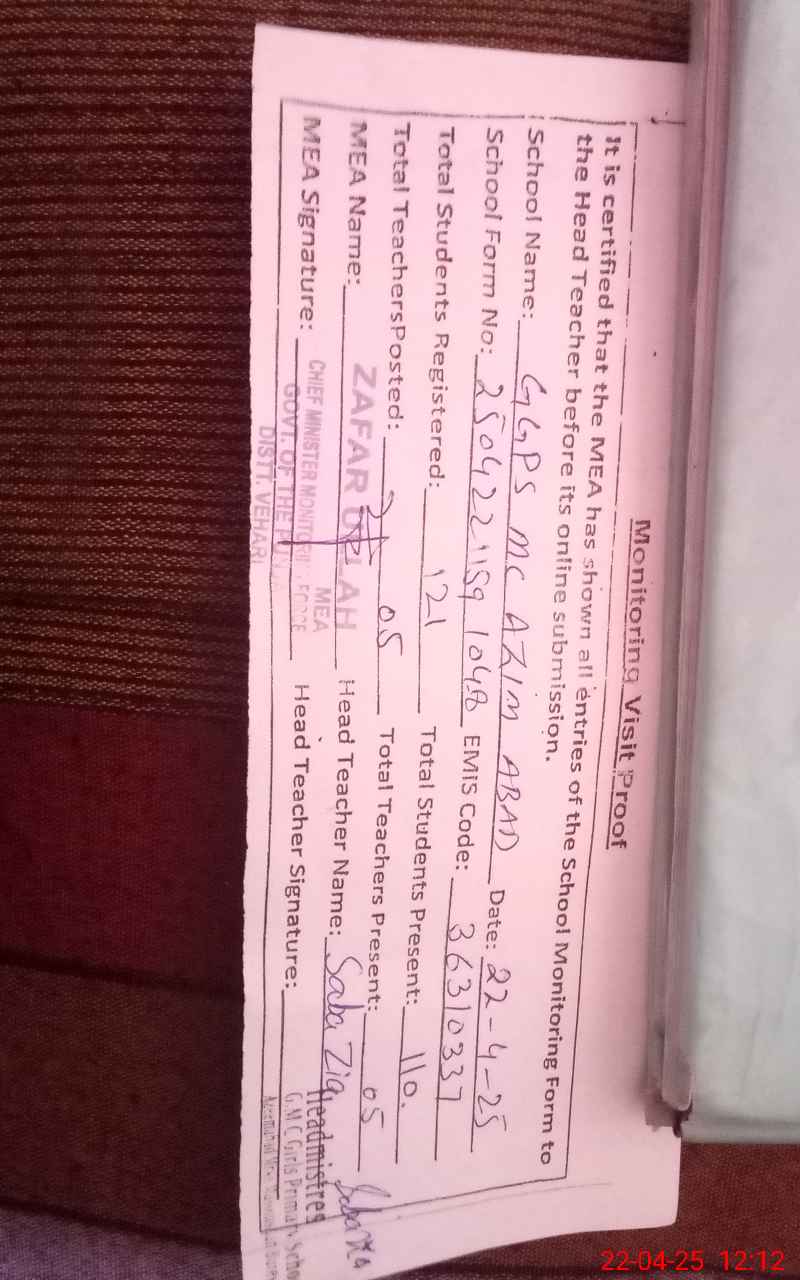 Monitoring Visit Proof
It is certified that the MEA has shown all entries of the School Monitoring Form to
the Head Teacher before its online submission.
School Name: GGPS MC AZIM ABAD Date: 22-4-25
School Form No: 250422 1159 1048 EMIS Code: 36310337
Total Students Registered: 121 Total Students Present: 110.
Total TeachersPosted: 05 Total Teachers Present: 05
MEA Name: ZAFAR ULLAH Head Teacher Name: Saba Zia
MEA Signature: Head Teacher Signature:
MEA
CHIEF MINISTER MONITORING FORCE
GOVT. OF THE PUNJAB
DISTT. VEHARI
Saba Zia
Headmistres
G.M.C Girls Primary Scho
22-04-25 12:12